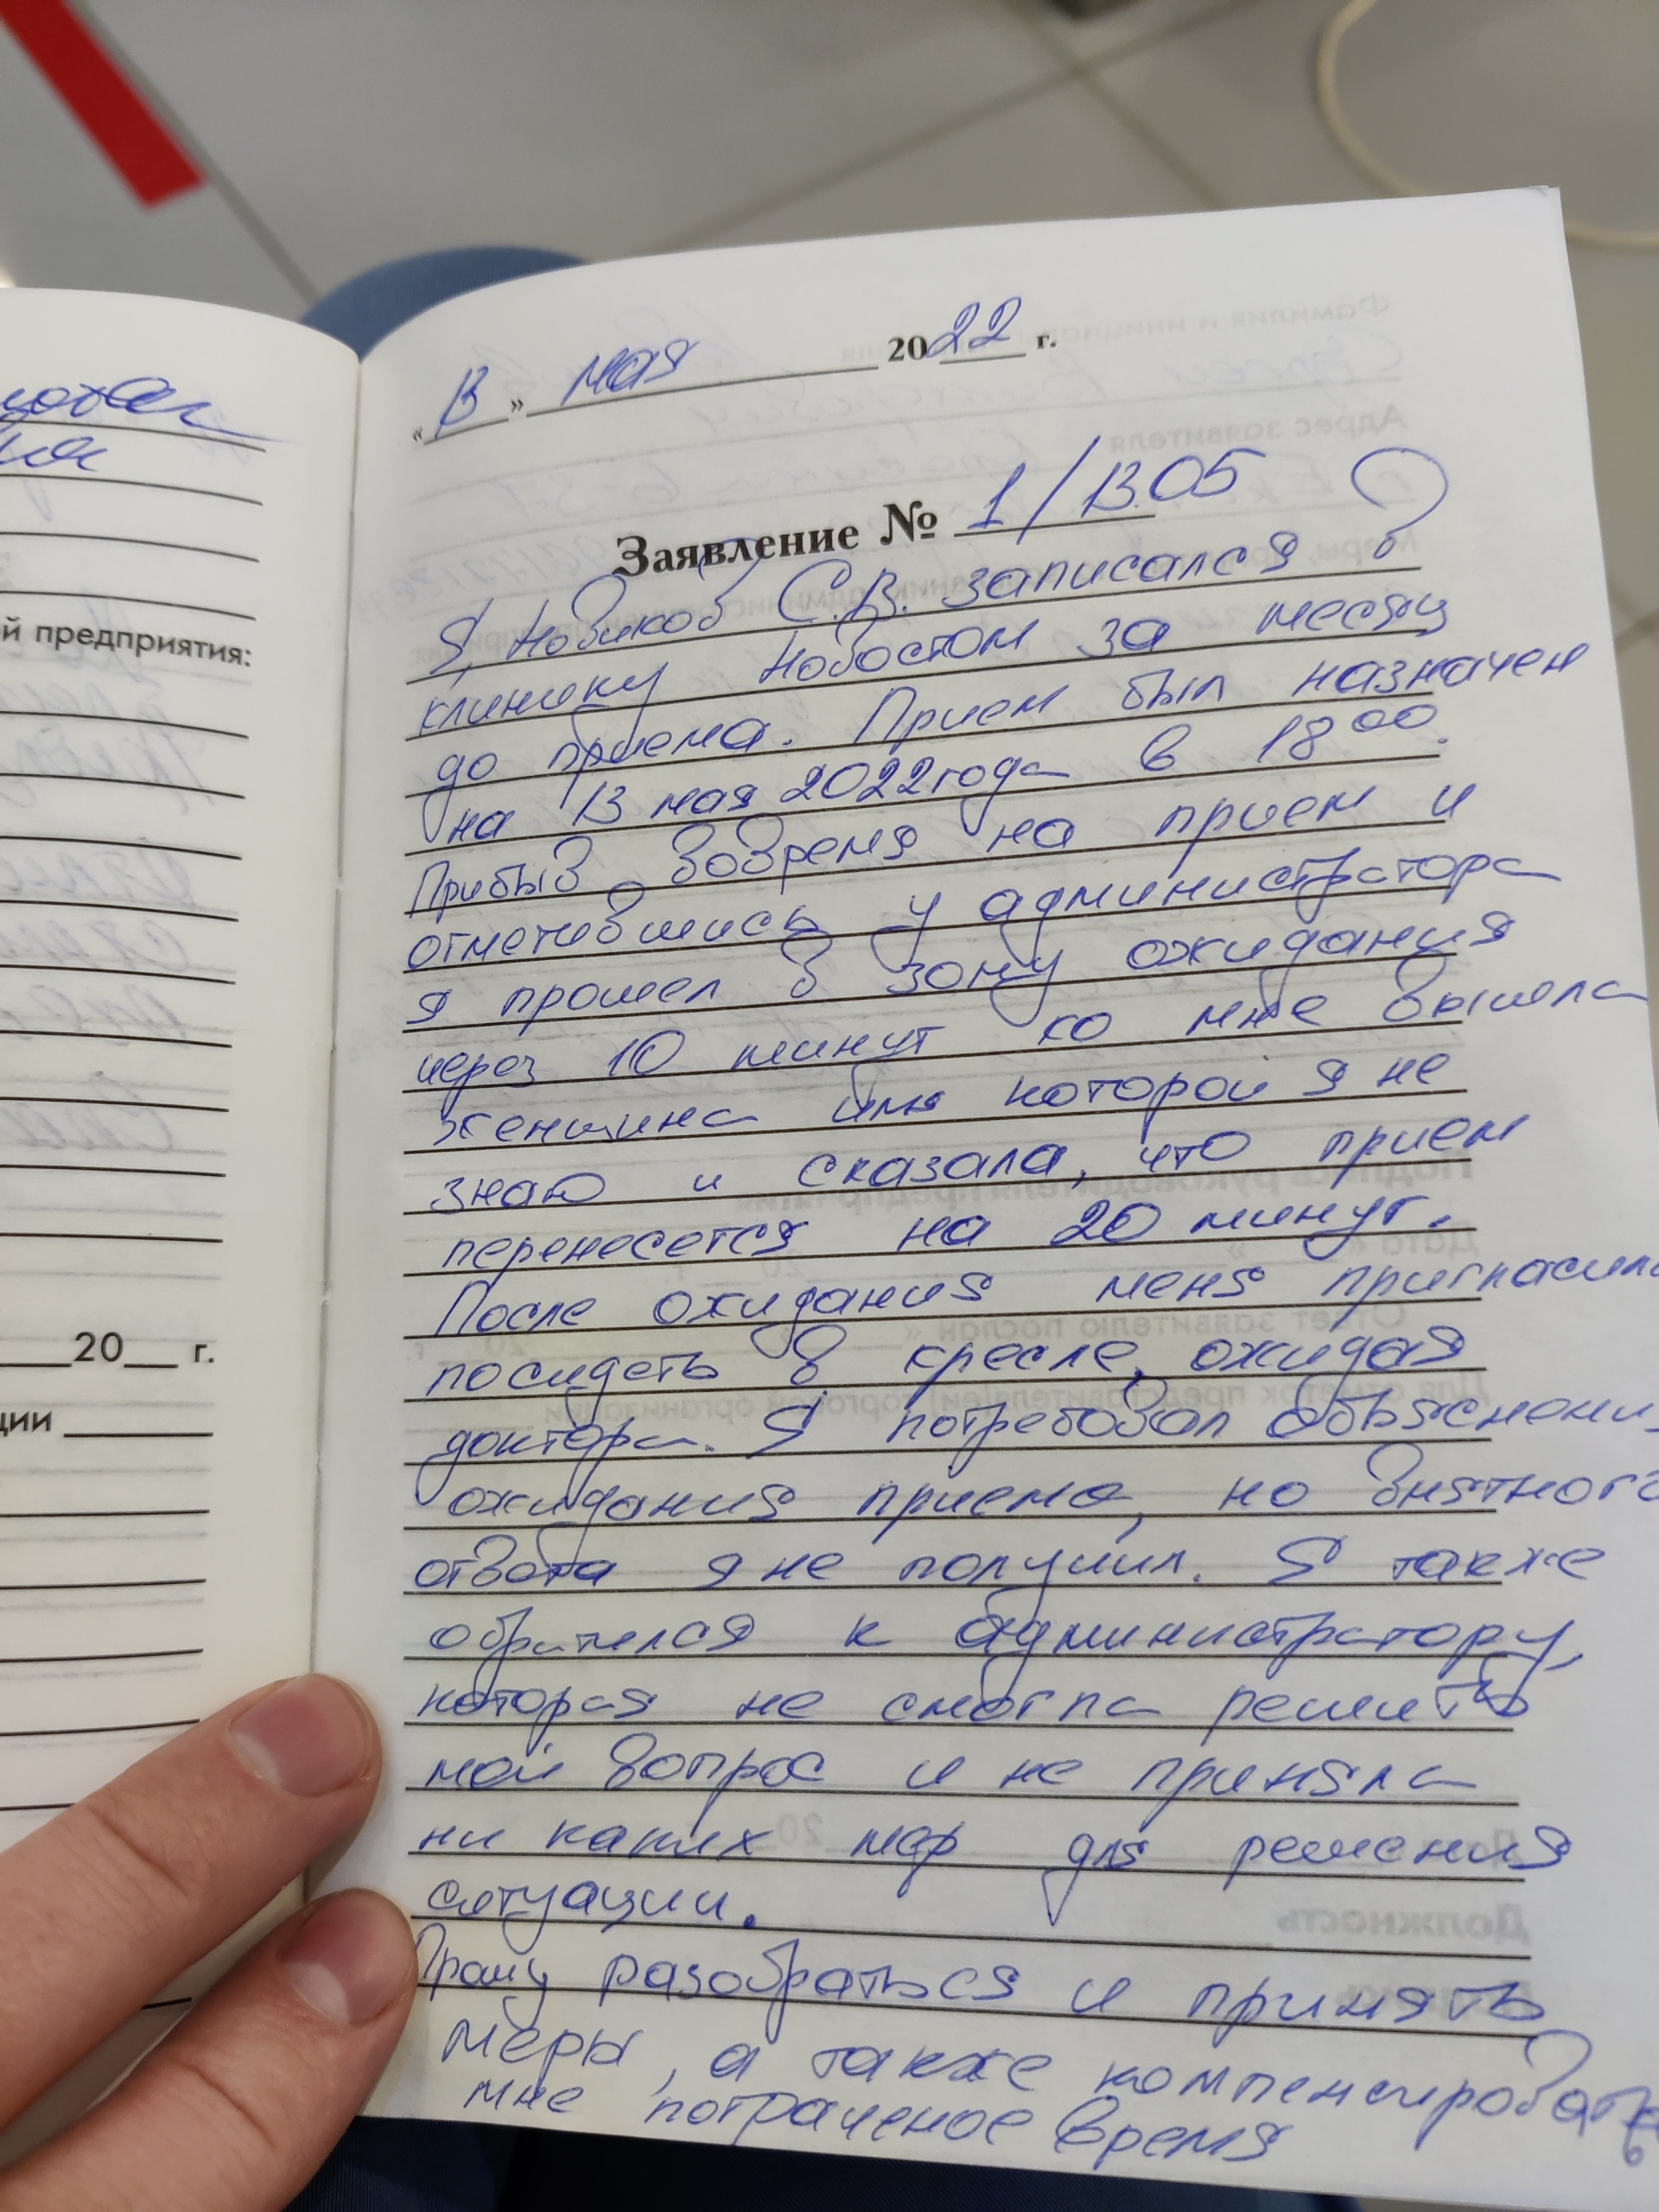 й предприятия:
20 г.
ции
« 13 » мая 2022 г.
Заявление № 1/13.05
Я, Новиков С.В. записался в
клинику Новостом за месяц
до приема. Прием был назначен
на 13 мая 2022 года в 18 00.
Прибыв вовремя на прием и
отметившись у администратора
я прошел в зону ожидания
через 10 минут ко мне вышла
женщина имя которой я не
знаю и сказала, что прием
перенесется на 20 минут.
После ожидания меня пригласили
посидеть в кресле, ожидая
доктора. Я потребовал объяснени
ожидания приема, но внятного
ответа я не получил. Я также
обратился к администратору,
которая не смогла решить
мой вопрос и не приняла
ни каких мер для решения
ситуации.
Прошу разобраться и принять
меры, а также компенсировать
мне потраченое время